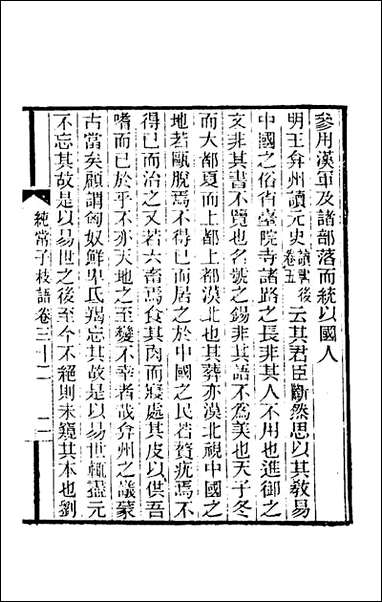 參用漢軍及諸部落而統以國人
明王弇州讀元史讀書後卷五云其君臣斷然思以其教易
中國之俗省臺院寺諸路之長非其人不用也進御之
文非其書不覽也名號之錫非其語不為美也天子冬
而大都夏而上都上都漠北也其葬亦漠北視中國之
地若甌脫焉不得已而居之於中國之民若贅疣焉不
得已而治之又若六畜焉食其肉而寢處其皮以供吾
嗜而已於乎不亦天地之至變不幸者哉弇州之議蒙
古當矣顧謂匈奴鮮卑氐羯忘其故是以易世輒盡元
不忘其故是以易世之後至今不絕則未窺其本也劉
純常子枝語卷三十二 二